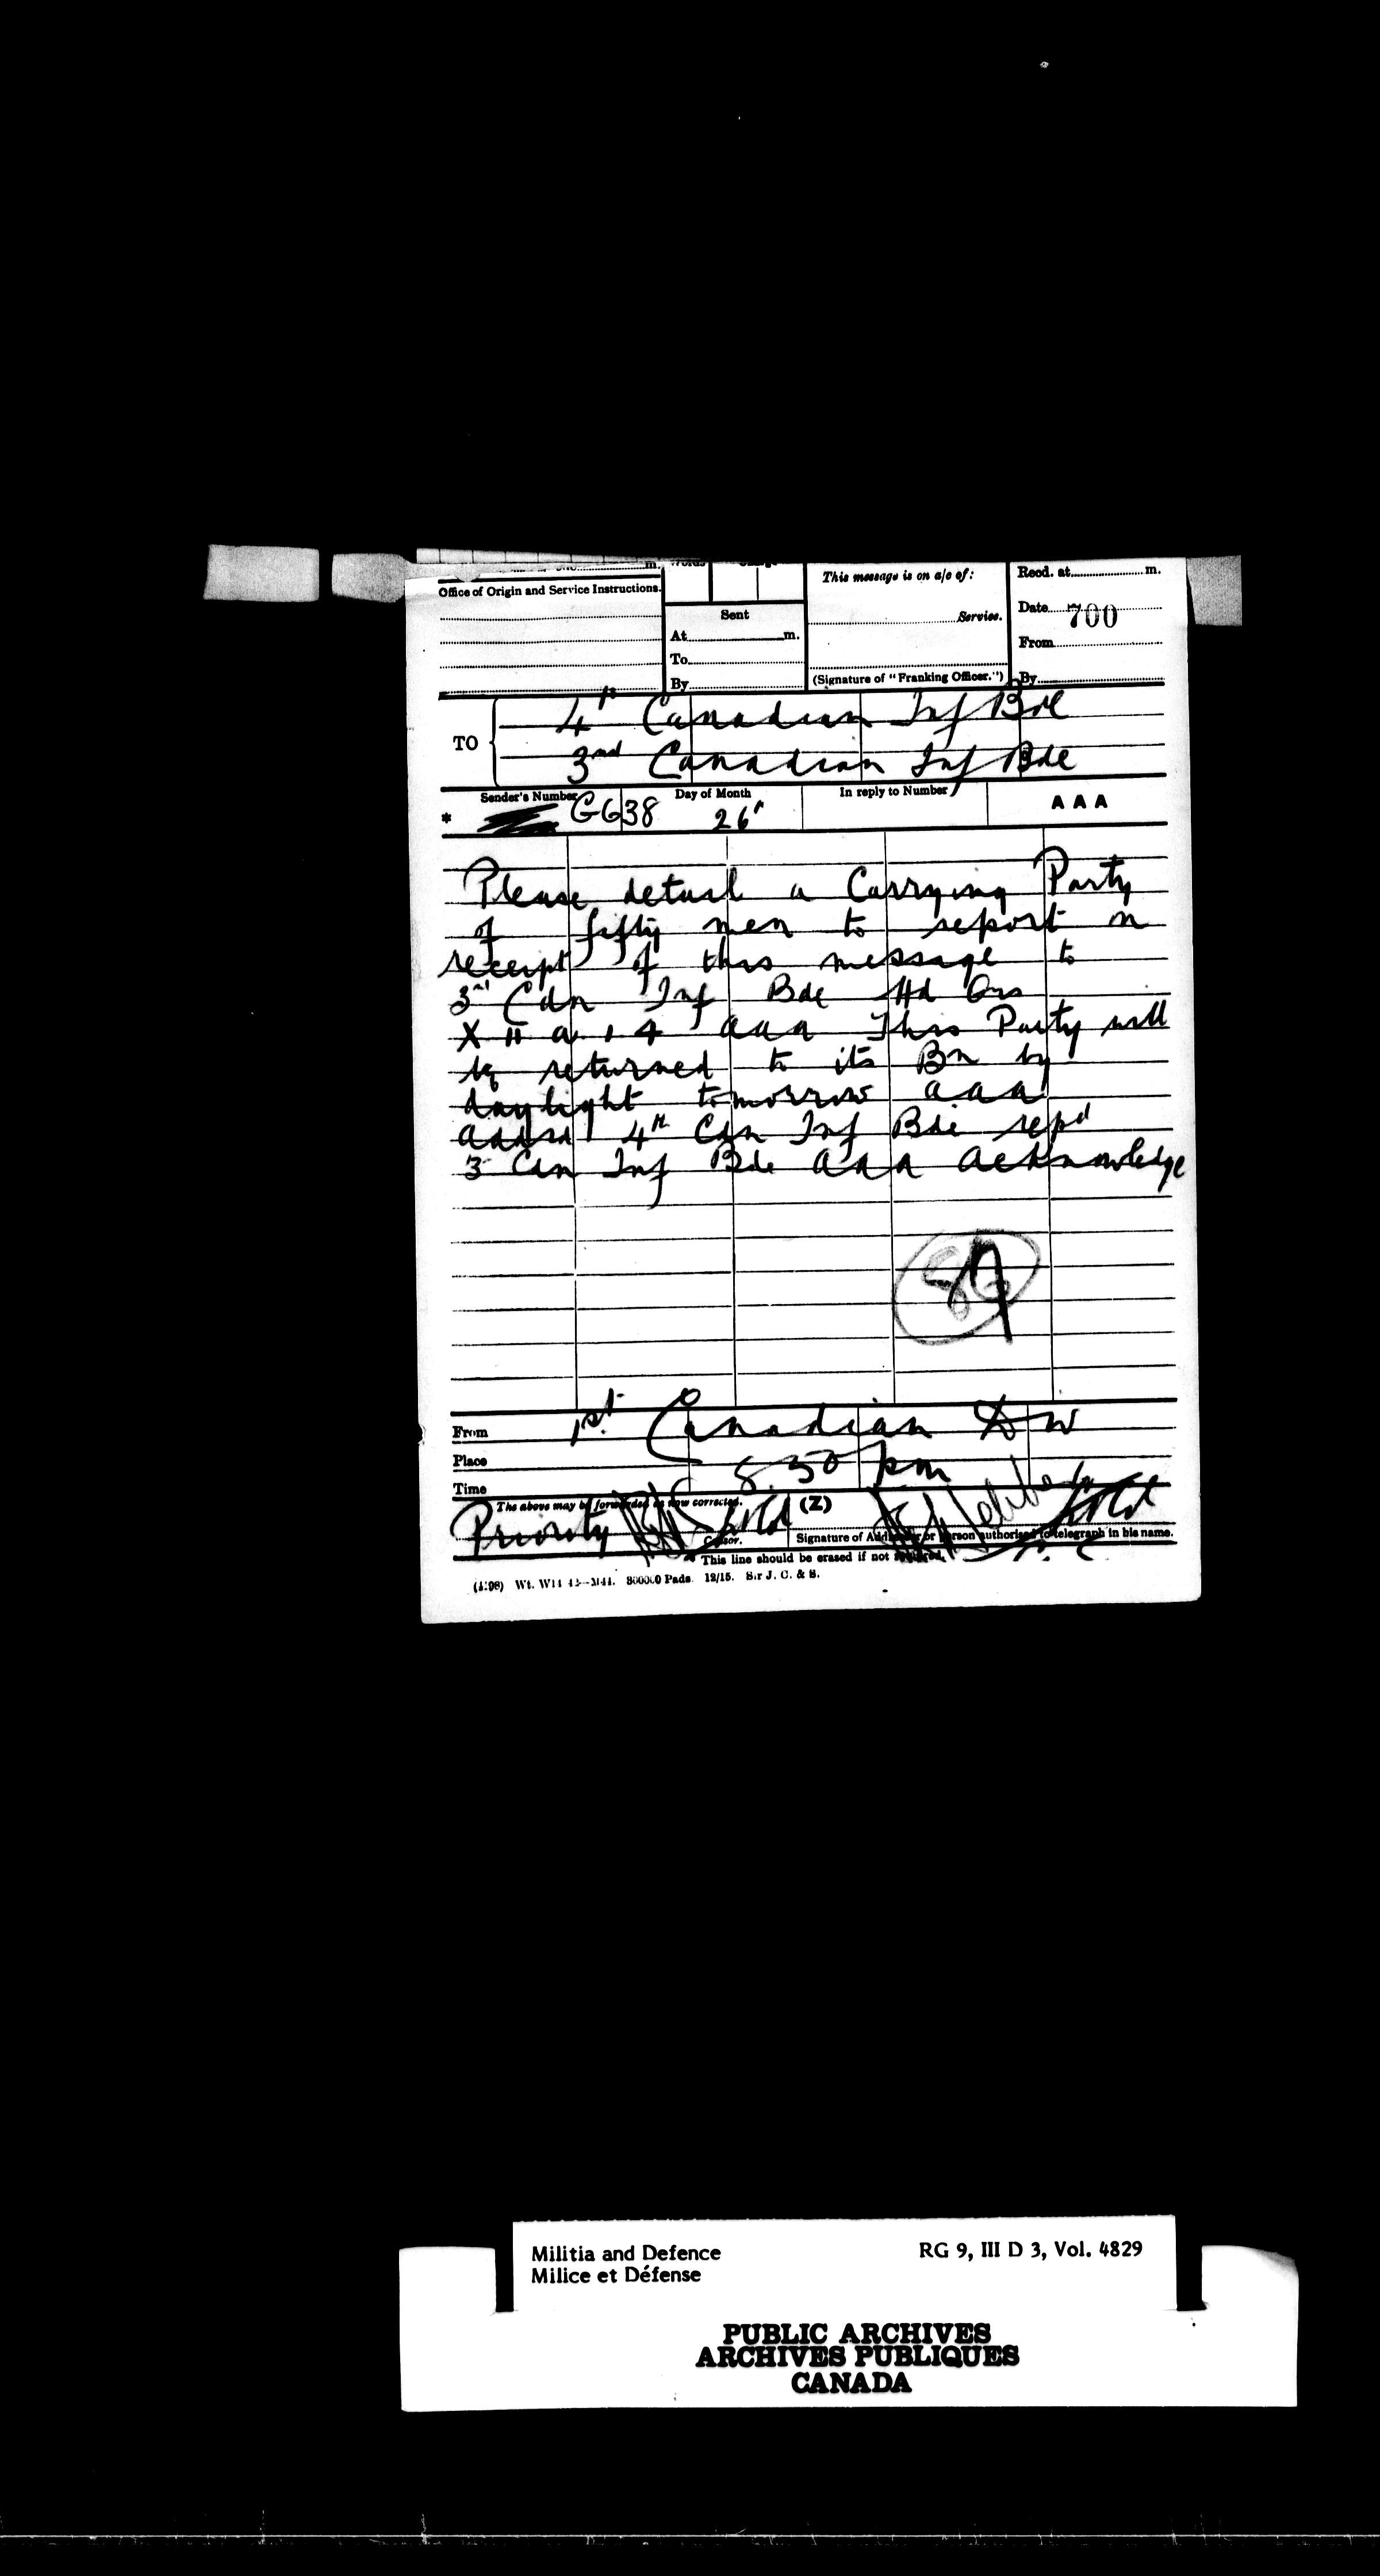 m. Words
Office of Origin and Service Instructions.
Sent
At m.
To
By
This message is on a/c of:
Service.
(Signature of "Franking Officer.")
Recd. at m.
Date 700
From
By
TO
4th Canadian Inf Bde
3rd Canadian Inf Bde
Sender's Number Day of Month In reply to Number AAA
* G638 26th
Please detail a Carrying Party
of fifty men to report on
receipt of this message to
3rd Cdn Inf Bde Hd Qrs
X 11 a 1 4 aaa This Party will
be returned to its Bn by
daylight tomorrow aaa
addsd 4th Cdn Inf Bde repd
3 Cdn Inf Bde aaa Acknowledge
From 1st Canadian Div
Place
Time 8.50 pm
The above may be forwarded as now corrected. (Z)
Priority
Censor. Signature of Addressor or person authorised to telegraph in his name.
* This line should be erased if not required.
800000 Pads. 12/15. Sir J. C. & S.
Militia and Defence
Milice et Défense
RG 9, III D 3, Vol. 4829
PUBLIC ARCHIVES
ARCHIVES PUBLIQUES
CANADA